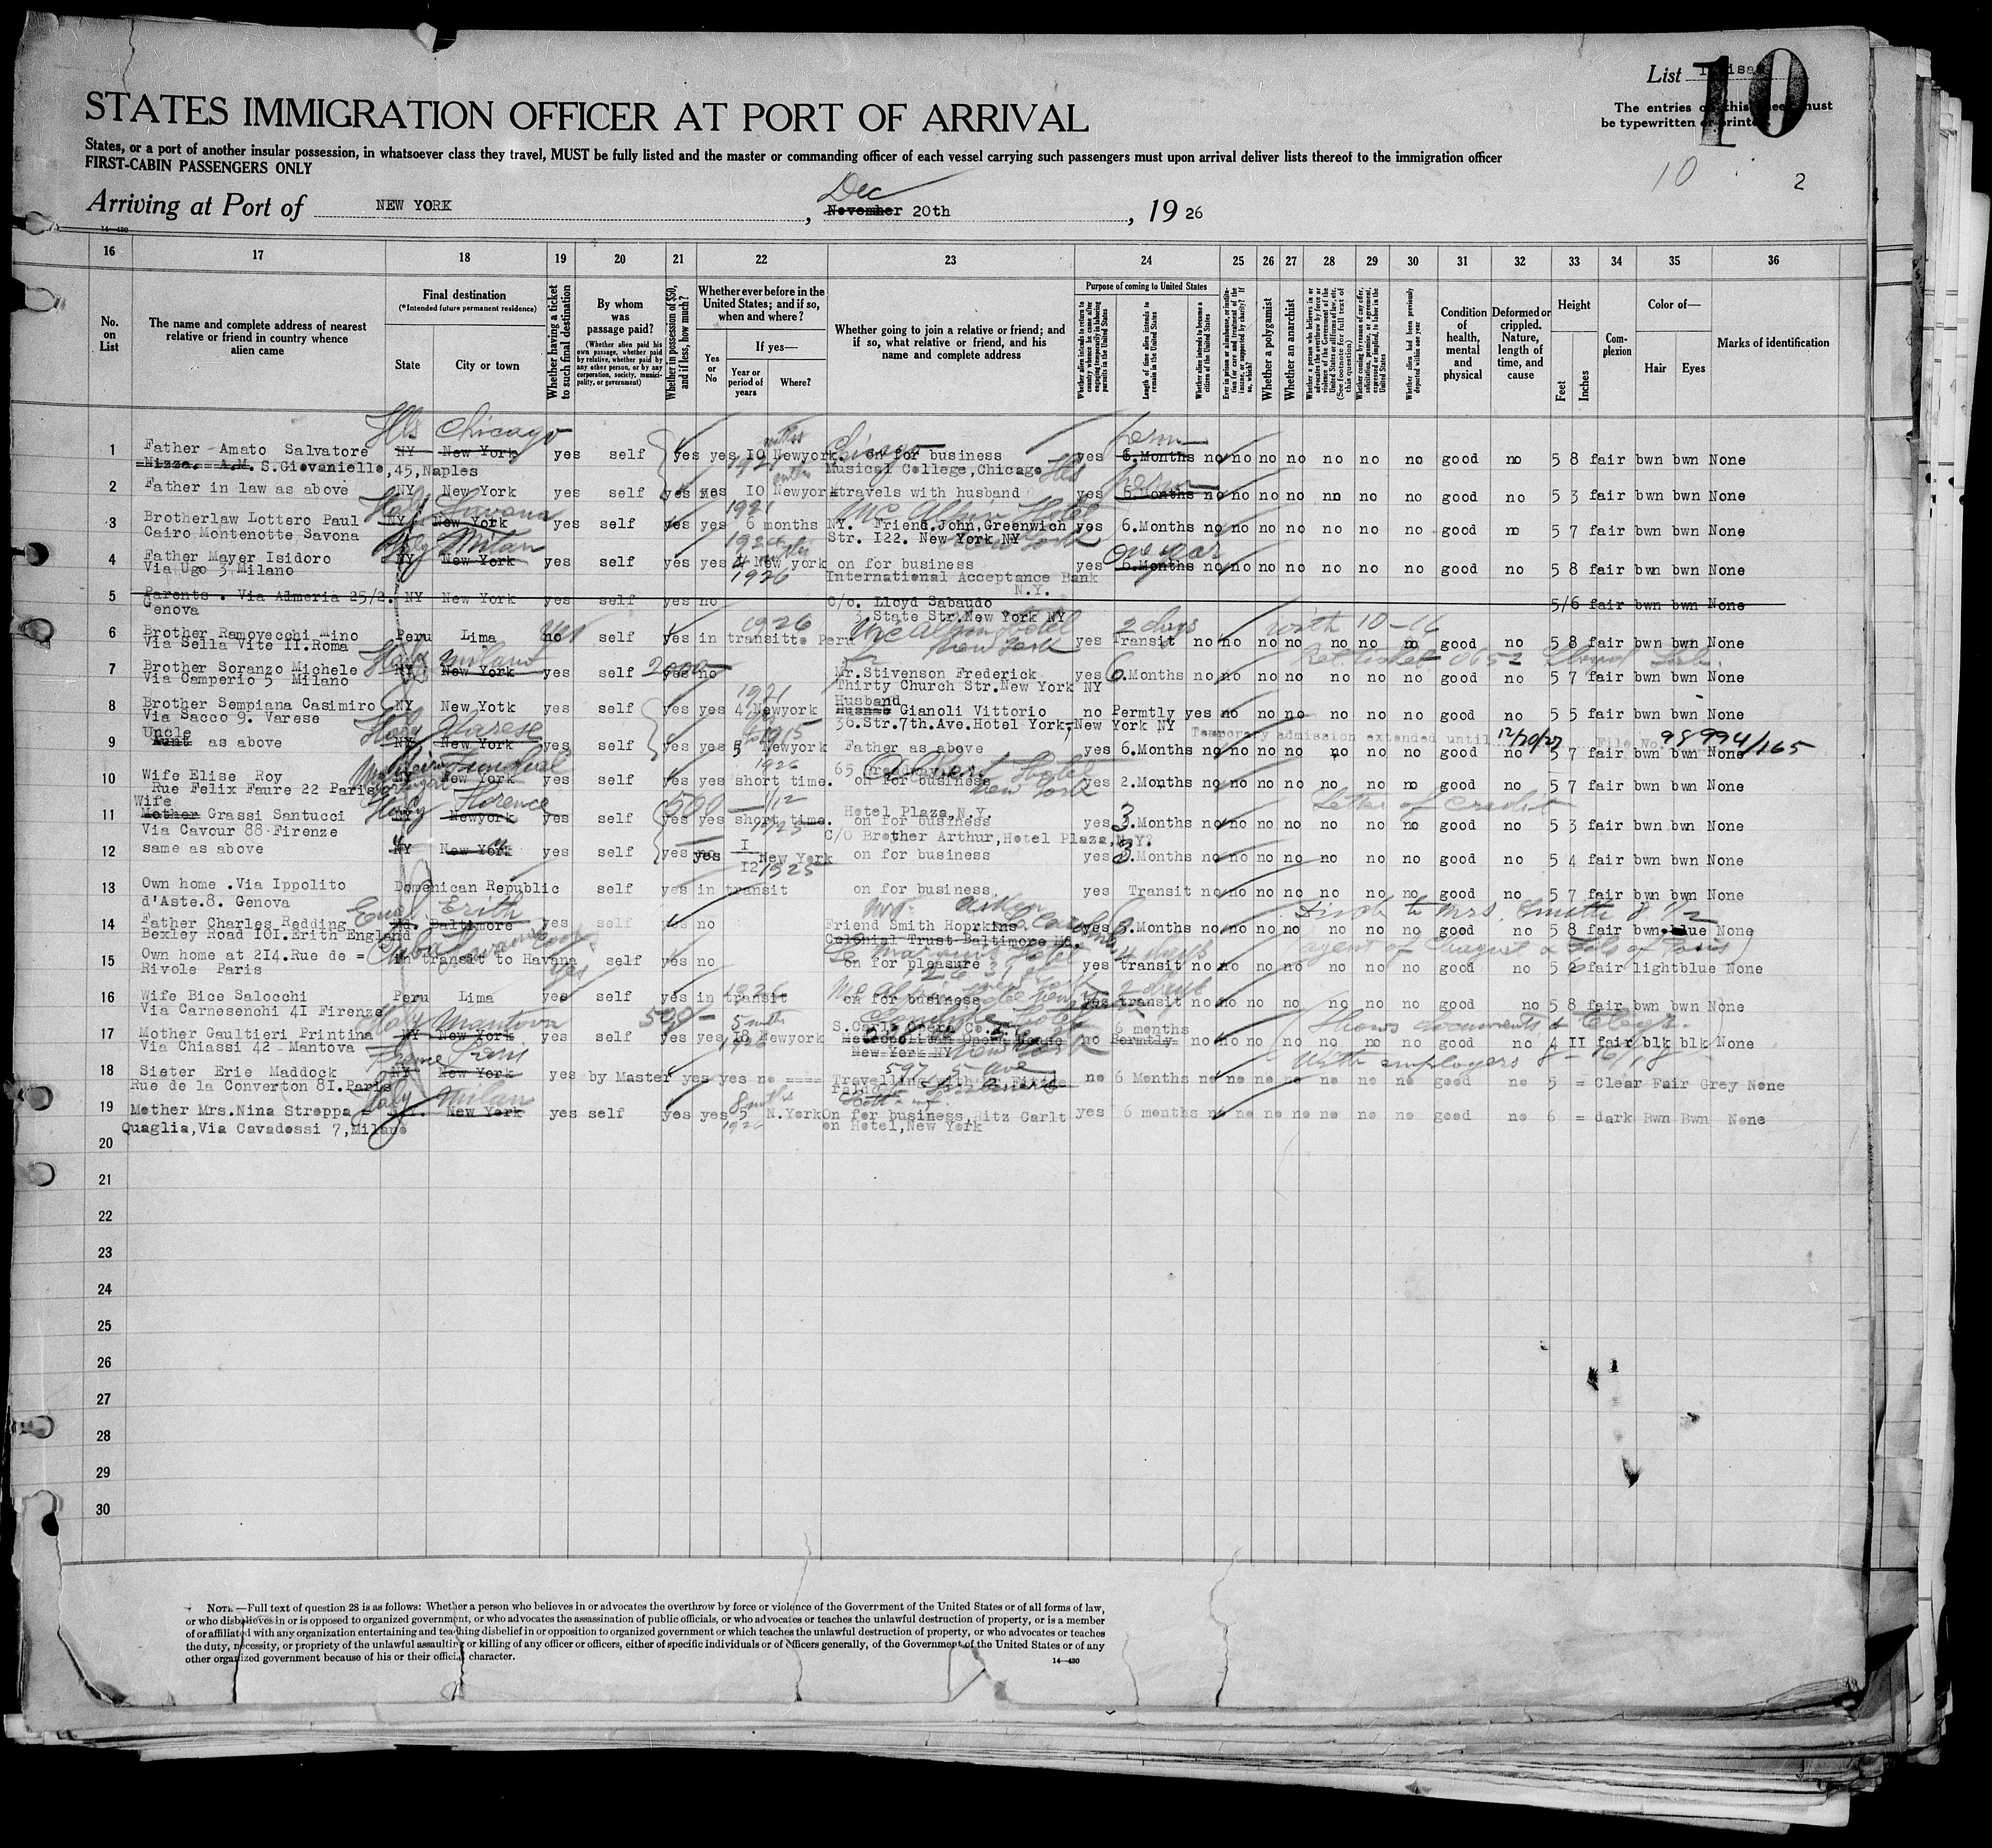 List
10
The entries on this sheet must
be typewritten or printed.
STATES IMMIGRATION OFFICER AT PORT OF ARRIVAL
States, or a port of another insular possession, in whatsoever class they travel, MUST be fully listed and the master or commanding officer of each vessel carrying such passengers must upon arrival deliver lists thereof to the immigration officer
FIRST-CABIN PASSENGERS ONLY
10 2
Dec
Arriving at Port of NEW YORK , November 20th , 19 26
14—430
16 17 18 19 20 21 22 23 24 25 26 27 28 29 30 31 32 33 34 35 36
No. on List
The name and complete address of nearest relative or friend in country whence alien came
Final destination
(*Intended future permanent residence)
State
City or town
Whether having a ticket to such final destination
By whom was passage paid?
(Whether alien paid his own passage, whether paid by relative, whether paid by any other person, or by any corporation, society, municipality, or government)
Whether in possession of $50, and if less, how much?
Whether ever before in the United States; and if so, when and where?
Yes or No
If yes—
Year or period of years
Where?
Whether going to join a relative or friend; and if so, what relative or friend, and his name and complete address
Purpose of coming to United States
Whether alien intends to return to country whence he came after engaging temporarily in laboring pursuits in the United States
Length of time alien intends to remain in the United States
Whether alien intends to become a citizen of the United States
Whether a polygamist
Whether an anarchist
Whether alien had been previously deported within one year
Condition of health, mental and physical
Deformed or crippled. Nature, length of time, and cause
Height
Feet
Inches
Complexion
Color of—
Hair
Eyes
Marks of identification
Ills Chicago
Chicago perm
1 Father Amato Salvatore NY New York yes self yes yes 10 Newyork on for business yes 6.Months no no no no no no no good no 5 8 fair bwn bwn None
Nizza. A.M. S.Giovaniello,45,Naples Musical College,Chicago Ills
2 Father in law as above NY New York yes self yes yes 10 Newyork travels with husband yes 6.Months no no no no no no no good no 5 3 fair bwn bwn None
Italy Savona 1921 McAlpin Hotel
3 Brotherlaw Lottero Paul NY New York yes self yes yes 6 months NY. Friend.John,Greenwich yes 6.Months no no no no no no no good no 5 7 fair bwn bwn None
Cairo Montenotte Savona Str. I22. New York NY
Italy Milan New York One year
4 Father Mayer Isidoro NY New York yes self yes yes 4 New york on for business yes 6.Months no no no no no no no good no 5 8 fair bwn bwn None
Via Ugo 3 Milano 1926 International Acceptance Bank
N.Y.
5 Parents . Via Almeria 25/2. NY New York yes self yes no C/o. Lloyd Sabaudo 5/6 fair bwn bwn None
Genova 3.State Str.New York NY
1926 McAlpin Hotel 2 days with 10-16
6 Brother Ramovecchi Mino Peru Lima no yes self yes in transitto Peru yes Transit no no no no no no no good no 5 8 fair bwn bwn None
Via Sella Vite II.Roma New York
Italy Milano 2000
7 Brother Soranzo Michele NY New York yes self yes no Mr.Stivenson Frederick yes 6.Months no no no no no no no good no 5 7 fair bwn bwn None
Via Camperio 5 Milano Thirty Church Str.New York NY
1921 Husband
8 Brother Sempiana Casimiro NY New Yotk yes self yes yes 4 Newyork Gianoli Vittorio no Permtly yes no no no no no no good no 5 5 fair bwn bwn None
Via Sacco 9. Varese 36.Str.7th.Ave.Hotel York,New York NY
Temporary admission extended until 12/20/27 File No. 98994/165
Uncle Italy Varese 1915
9 Aunt as above NY New York yes self yes yes 5 Newyork Father as above yes 6.Months no no no no no no no good no 5 7 fair bwn bwn None
Madeira Funchal 1926 65 Albert Hotel
10 Wife Elise Roy NY New York yes self yes yes short time. on for business yes 2.Months no no no no no no no good no 5 7 fair bwn bwn None
Rue Felix Faure 22 Paris Portugal New York
Wife Italy Florence 500 Hotel Plaza,N.Y. Letter of credit
11 Mother Grassi Santucci NY Newyork yes self yes yes short time. on for business yes 3.Months no no no no no no no good no 5 3 fair bwn bwn None
Via Cavour 88 Firenze 1925 C/O Brother Arthur,Hotel Plaza,N.Y?
12 same as above NY New York yes self yes no yes New York on for business yes 3.Months no no no no no no no good no 5 4 fair bwn bwn None
1925
13 Own home .Via Ippolito Domenican Republic self yes in transit on for business yes Transit no no no no no no no good no 5 7 fair bwn bwn None
d'Aste.8. Genova
Eng. Erith Disch to Mrs. Smith
14 Father Charles Redding Md. Baltimore yes self yes no Friend Smith Hoprkins yes 3.Months no no no no no no no good no 5 8 fair bwn blue None
Bexley Road IOI.Erith England Colonial Trust Baltimore Md.
Cuba Havana Hotel 4 days
15 Own home at 2I4.Rue de = in transit to Havana yes self yes no on for pleasure yes transit no no no no no no no good no 5 6 fair lightblue None
Rivole Paris
1926 McAlpin Hotel New York 2 days
16 Wife Bice Salocchi Peru Lima yes self yes in transit on for business yes transit no no no no no no no good no 5 8 fair bwn bwn None
Via Carnesenchi 4I Firenze
Italy Mantova 500 5 mths S.Carlo Opera Co. 6 months Shows documents
17 Mother Gaultieri Printina NY New York yes self yes yes 18 Newyork Metropolitan Opera House no Permtly no no no no no no no good no 4 II fair blk blk None
Via Chiassi 42 Mantova New York NY New York
France Paris 597 5 ave With employers 8- 16/18
18 Sister Erie Maddock NY New York yes by Master yes yes no ==== Travelling with no 6 Months no no no no no no no good no 5 = Clear Fair Grey None
Rue de la Converton 8I.Paris
Italy Milan 8 mths
19 Mother Mrs.Nina Stroppa = New York yes self yes yes N.York On for business,Ritz Carlt yes 6 months no no no no no no no good no 6 = dark Bwn Bwn None
Quaglia,Via Cavadossi 7,Milano 1926 on Hotel,New York
20
21
22
23
24
25
26
27
28
29
30
NOTE.—Full text of question 28 is as follows: Whether a person who believes in or advocates the overthrow by force or violence of the Government of the United States or of all forms of law,
or who disbelieves in or is opposed to organized government, or who advocates the assassination of public officials, or who advocates or teaches the unlawful destruction of property, or is a member
of or affiliated with any organization entertaining and teaching disbelief in or opposition to organized government or which teaches the unlawful destruction of property, or who advocates or teaches
the duty, necessity, or propriety of the unlawful assaulting or killing of any officer or officers, either of specific individuals or of officers generally, of the Government of the United States or of any
other organized government because of his or their official character.
14—430